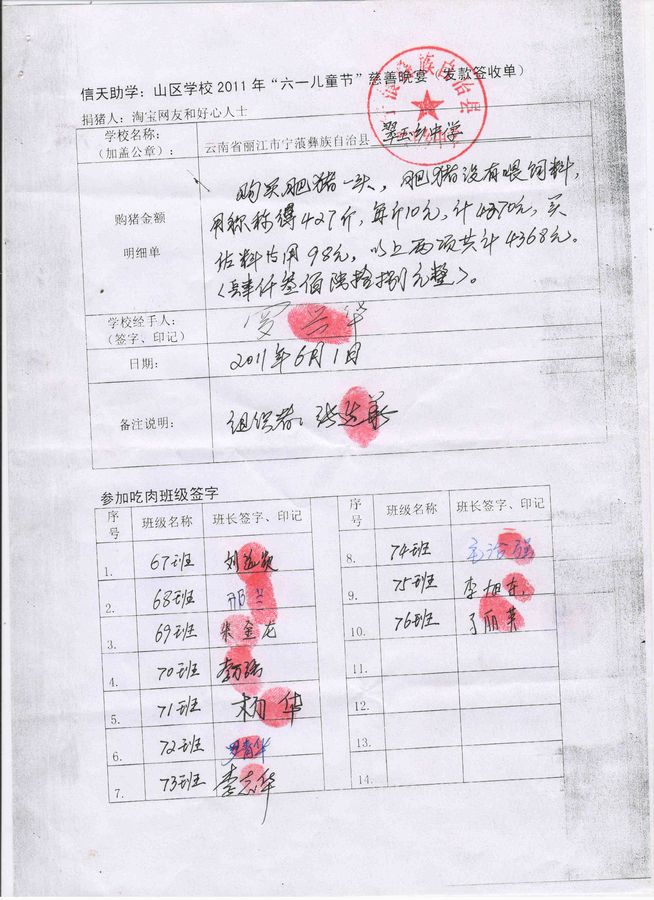 信天助学：山区学校2011年“六一儿童节”慈善晚宴（发款签收单）
捐猪人：淘宝网友和好心人士
学校名称：
（加盖公章）：
云南省丽江市宁蒗彝族自治县 翠玉乡中学
购猪金额
明细单
购买肥猪一头，肥猪没有喂饲料，
用称称得427斤，每斤10元，计4270元，买
佐料占用98元，以上两项共计4368元。
（肆仟叁佰陆拾捌元整）。
学校经手人：
（签字、印记）
日期：
2011年6月1日
备注说明：
组织者：
参加吃肉班级签字
序号 班级名称 班长签字、印记
1. 67班
2. 68班
3. 69班 朱金龙
4. 70班
5. 71班 杨华
6. 72班
7. 73班 李志华
序号 班级名称 班长签字、印记
8. 74班
9. 75班
10. 76班 丁丽英
11.
12.
13.
14.